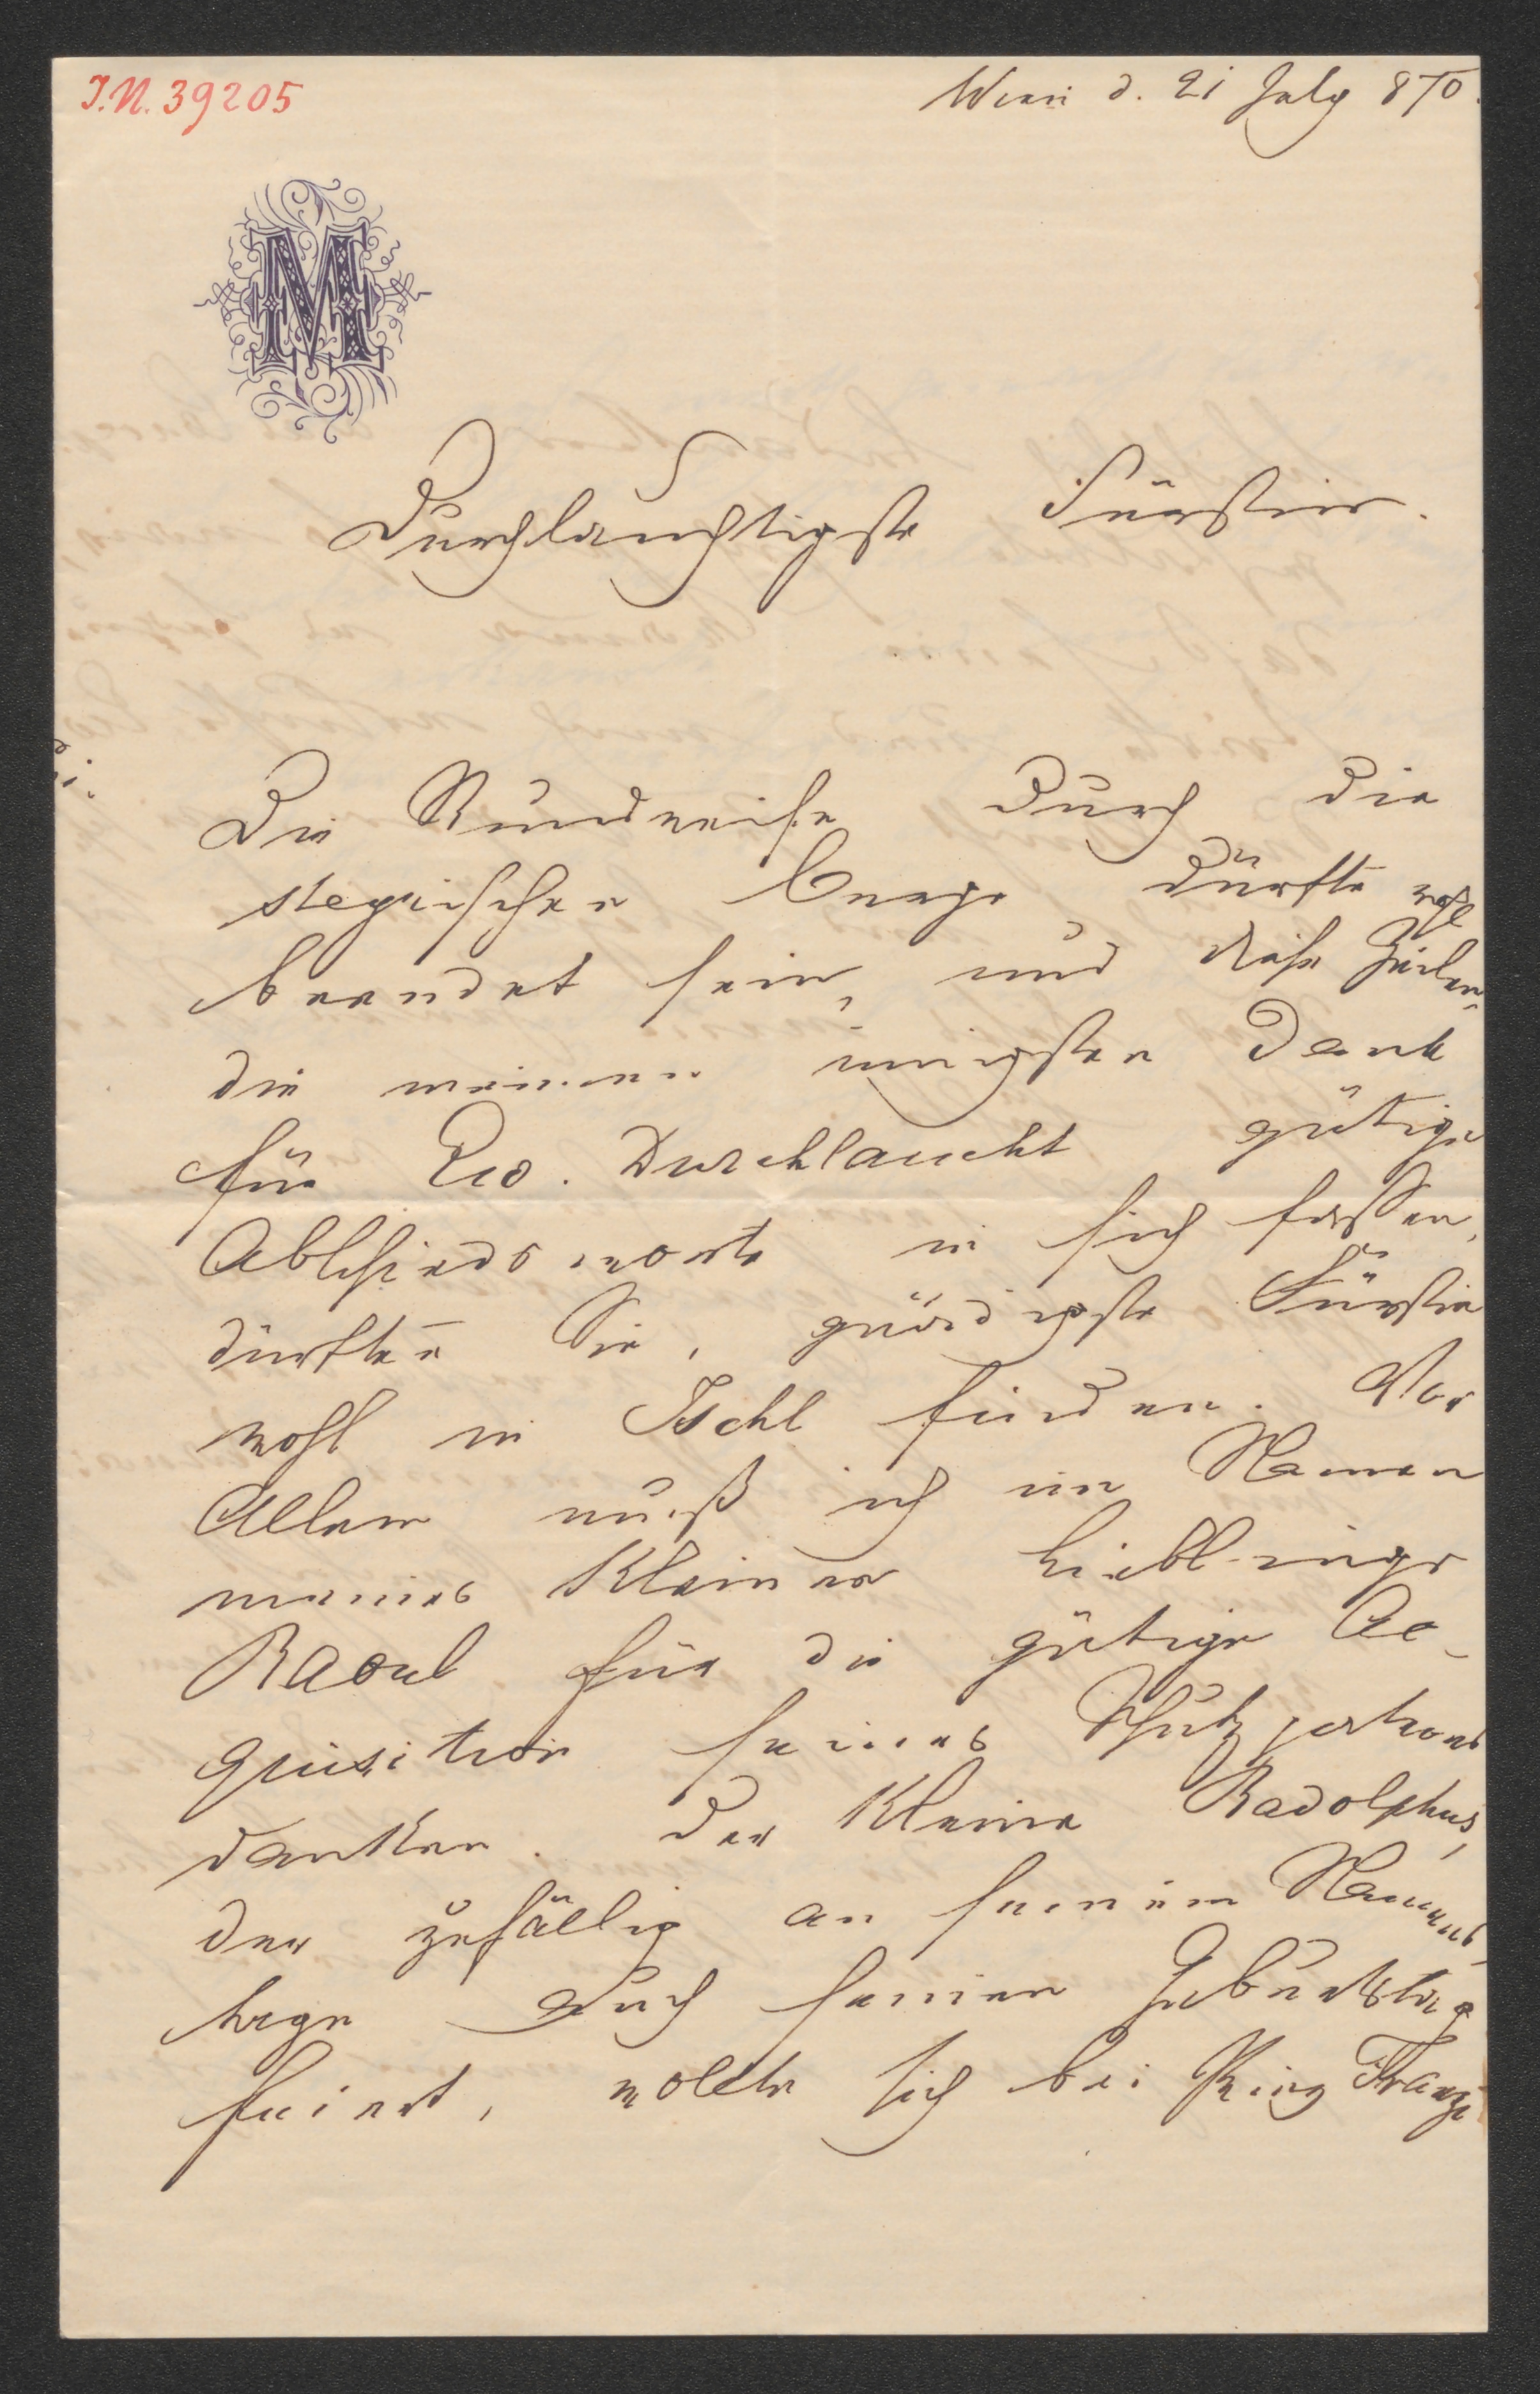 I.N. 39205
Wien d. 21 July 870.
M
Durchlauchtigste Fürstin.
Die Rundreise durch die
steyrischen Berge dürfte wohl
beendet sein, und diese Zeilen,
die meinen innigsten Dank
für Ew. Durchlaucht gütige
Abschiedsworte in sich fassen,
dürften Sie, gnädigste Fürstin
wohl in Ischl finden. Vor
Allem muß ich im Namen
meines Kleinen Lieblings
Raoul für die gütige Ac-
quisition seines Schutzpatrons
danken. Der Kleine Radolphus,
der zufällig an seinem Namens
tage auch seinen Geburtstag
feiert, wollte sich bei King Franz